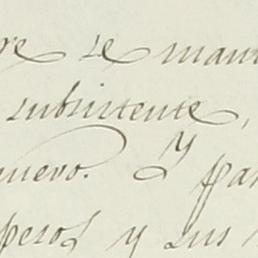 re se man
subsistente,
nuevo. Y pa
pesos y sus